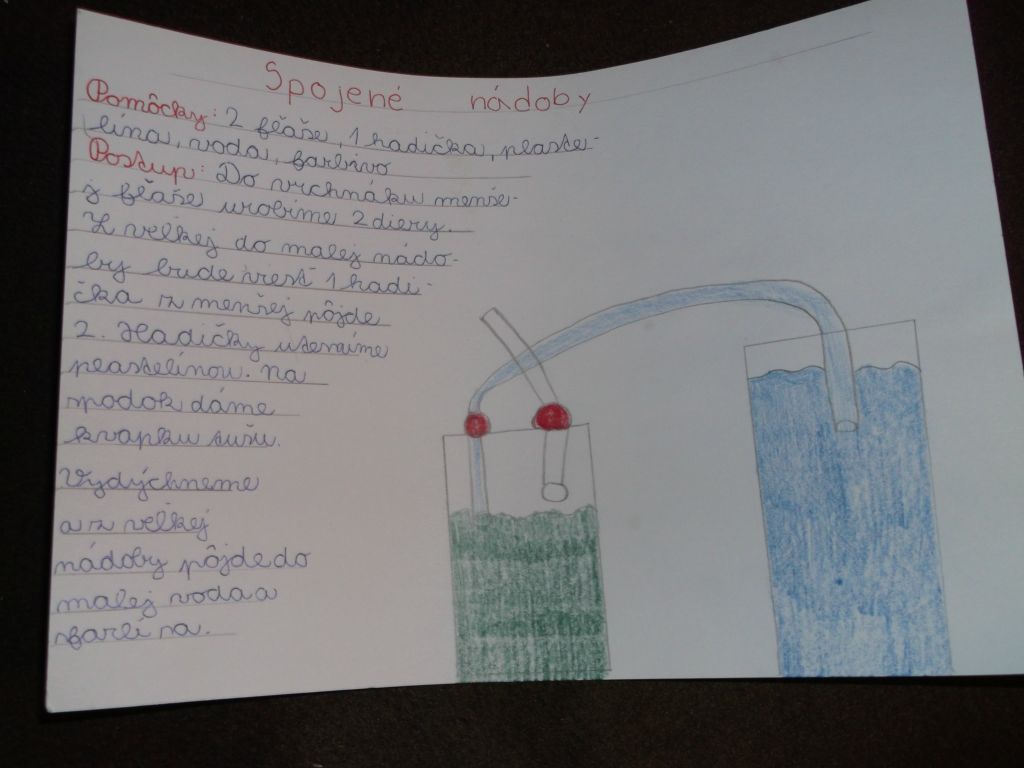 Spojené nádoby
Pomôcky: 2 fľaše, 1 hadička, plaste-
lína, voda, farbivo
Postup: Do vrchnáku menše-
j fľaše urobíme 2 diery.
Z veľkej do malej nádo-
by bude viesť 1 hadi-
čka z menšej pôjde
2. Hadičky utesníme
plastelínou. Na
spodok dáme
kvapku tušu.
Vydýchneme
a z veľkej
nádoby pôjde do
malej voda a
sfarbí sa.